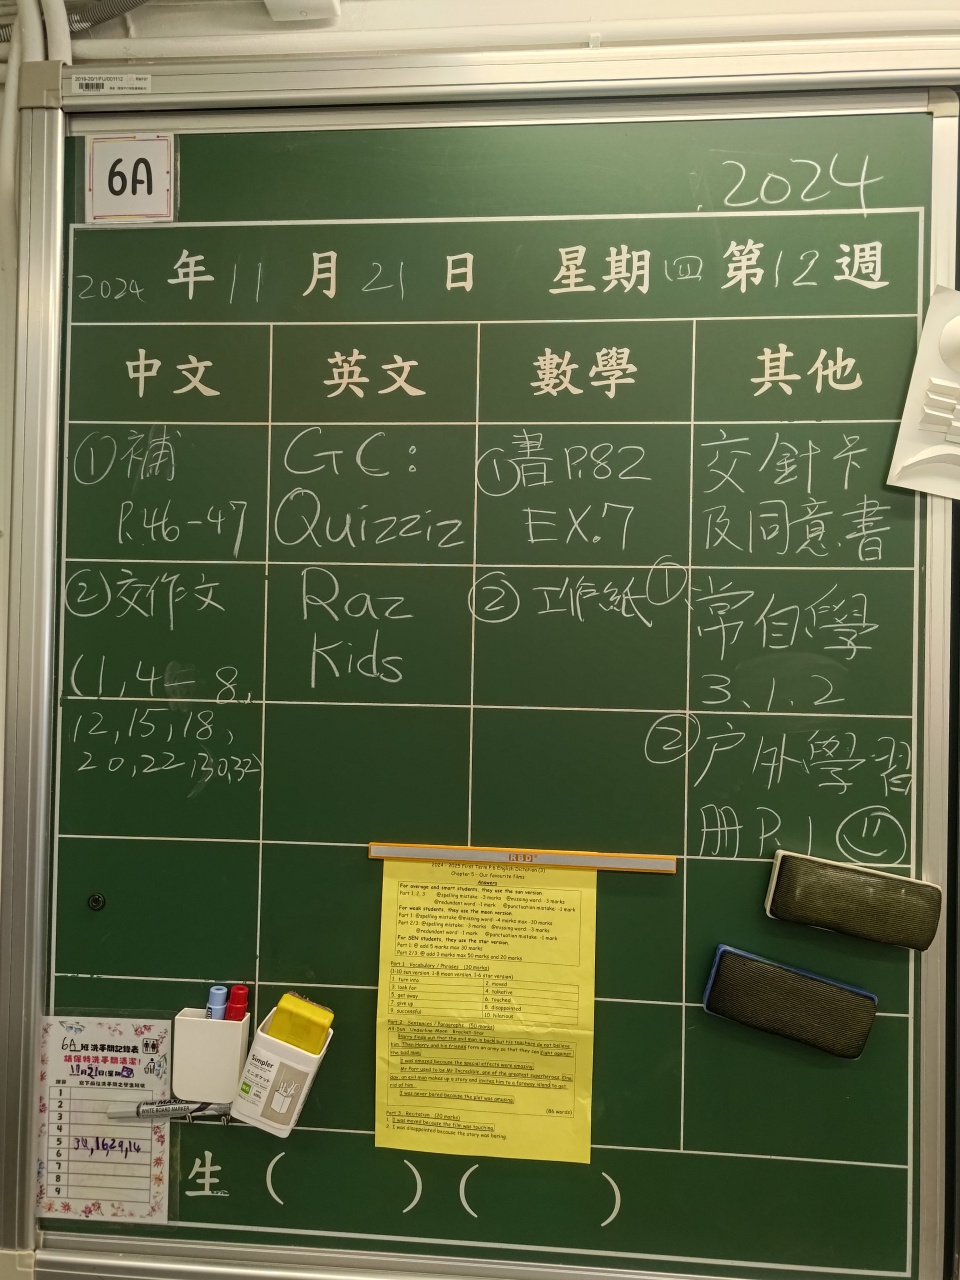 2019-20/1/FU/001112
6A
2024
2024 年 11 月 21 日 星期 四 第 12 週
中文 英文 數學 其他
①補
P.46-47
②交作文
(1,4-8,
12,15,18,
20,22,30,32)
GC:
Quizziz
Raz
Kids
①書P.82
EX.7
②工作紙
交針卡
及同意書
①常自學
3.1.2
②户外學習
册P.1
RBD
2024 - 2025 First Term P.6 English Dictation (3)
Chapter 5 – Our favourite films
Answers
For average and smart students, they use the sun version
Part 1, 2, 3 @spelling mistake: -3 marks @missing word: -3 marks
@redundant word: -1 mark @punctuation mistake: -1 mark
For weak students, they use the moon version
Part 1: @spelling mistake @missing word: -4 marks max -30 marks
Part 2/3: @spelling mistake: -3 marks @missing word: -3 marks
@redundant word: -1 mark @punctuation mistake: -1 mark
For SEN students, they use the star version
Part 1: @ add 5 marks max 30 marks
Part 2/3: @ add 3 marks max 50 marks and 20 marks
Part 1 Vocabulary / Phrases (30 marks)
(1-10 sun version, 1-8 moon version, 1-6 star version)
1. turn into 2. moved
3. look for 4. talkative
5. get away 6. touched
7. give up 8. disappointed
9. successful 10. hilarious
Part 2 Sentences / Paragraphs (50 marks)
All-Sun Underline-Moon Bracket-Star
Harry finds out that the evil man is back but his teachers do not believe
him. Then Harry and his friends form an army so that they can fight against
the bad man.
I was amazed because the special effects were amazing.
Mr Parr used to be Mr Incredible, one of the greatest superheroes. One
day, an evil man makes up a story and invites him to a faraway island to get
rid of him.
I was never bored because the plot was amusing.
(86 words)
Part 3 Recitation (20 marks)
1. I was moved because the film was touching.
2. I was disappointed because the story was boring.
6A 班洗手間記錄表
請保持洗手間清潔!
11月21日(星期四)
寫下前往洗手間之學生時號
1
2
3
4
5
6
7
8
9
WHITE BOARD MARKER
Simpler
生 ( ) ( )